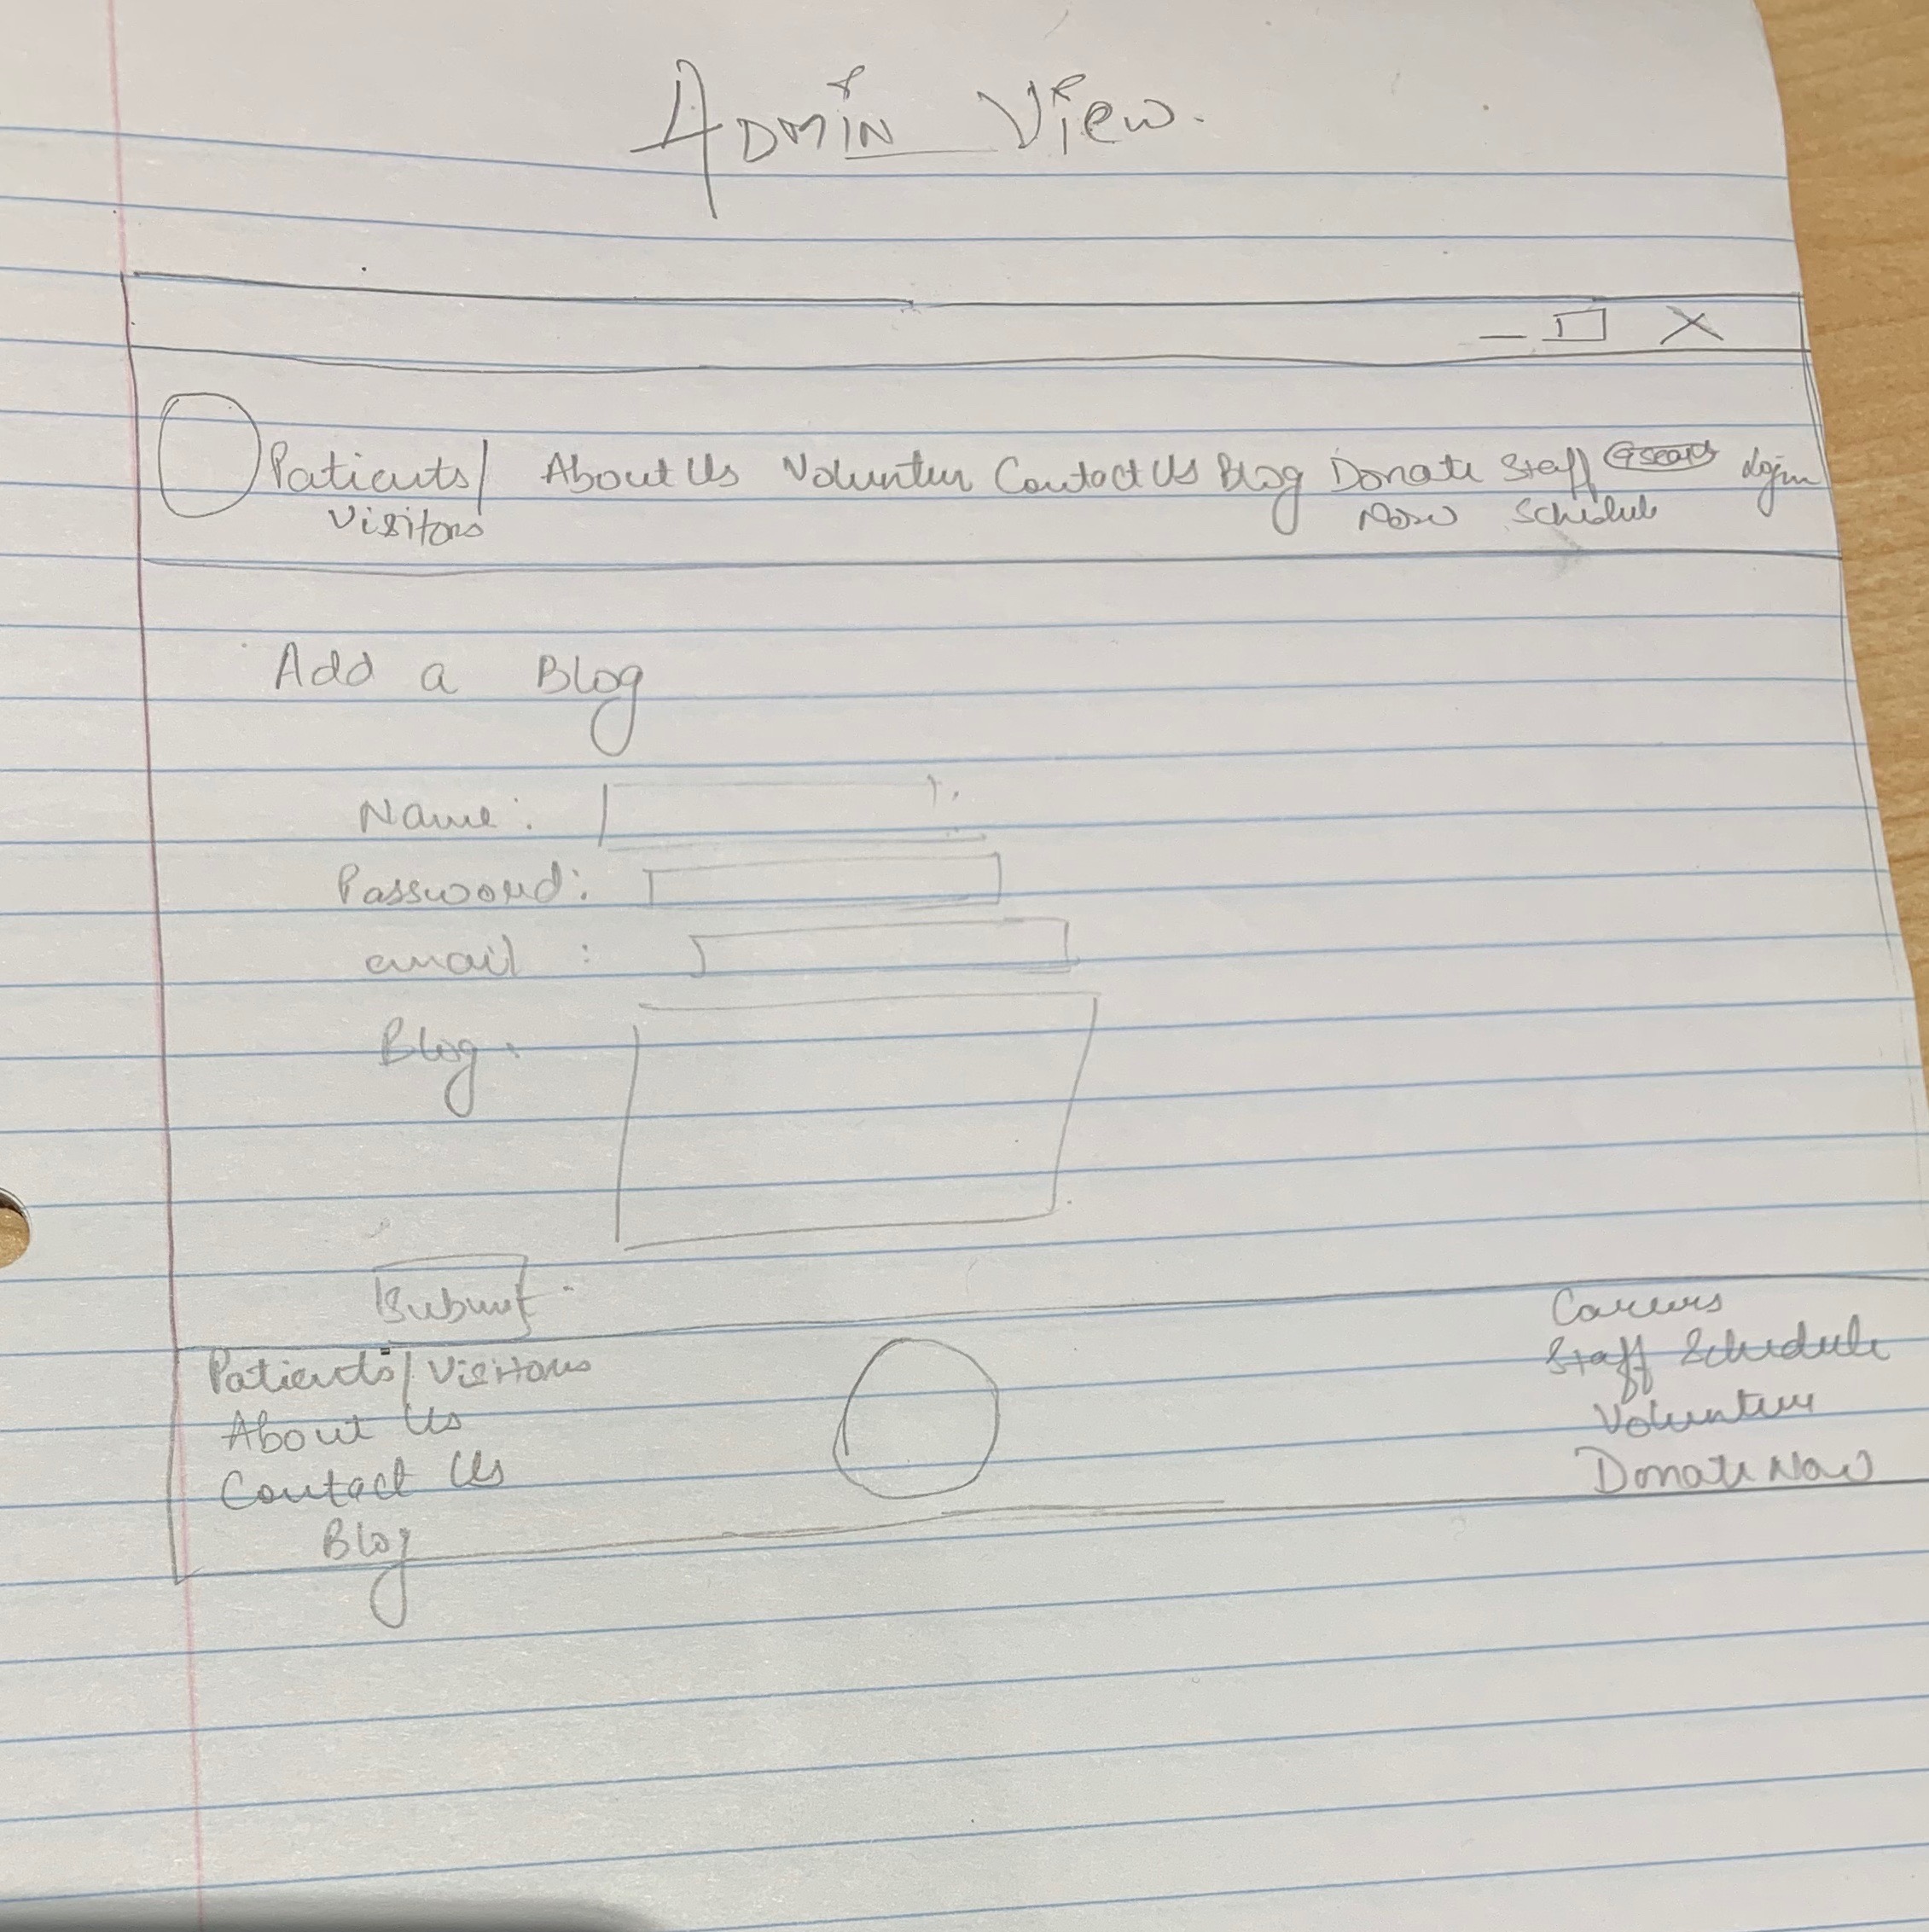 Admin View.
Patients/ About Us Volunteer Contact Us Blog Donate Staff Search Login
Visitors Now Schedule
Add a Blog
Name:
Password:
email :
Blog:
Submit
Patients/Visitors
About Us
Contact Us
Blog
Careers
Staff Schedule
Volunteer
Donate Now